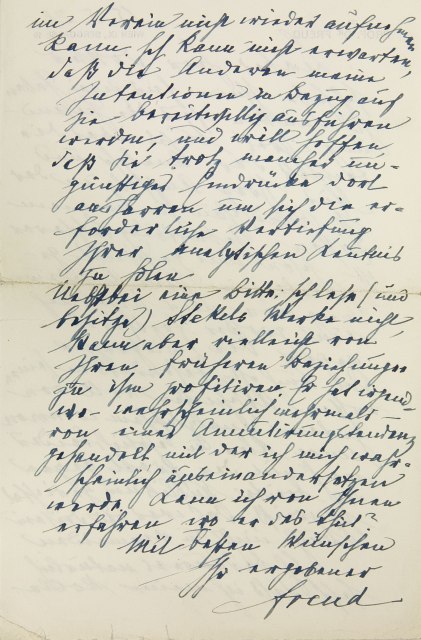 im Verein nicht wieder aufnehmen
kann. Ich kann nicht erwarten,
daß die Anderen meine
Intentionen in Bezug auf
Sie bereitwillig ausführen
werden, und will hoffen,
daß Sie trotz mancher un-
günstiger Eindrücke dort
ausharren um sich die er-
forderliche Vertiefung
Ihrer analytischen Kenntnis
zu holen
Nebstbei eine Bitte: ich lese (und
besitze) Stekels Werke nicht,
kann aber vielleicht von
Ihren früheren Beziehungen
zu ihm profitiren. Er hat irgend-
wo - wahrscheinlich mehrmals -
von einer Annullirungstendenz
gehandelt mit der ich mich wahr-
scheinlich auseinandersetzen
werde. Kann ich von Ihnen
erfahren wo er das thut?
Mit besten Wünschen
Ihr ergebener
Freud